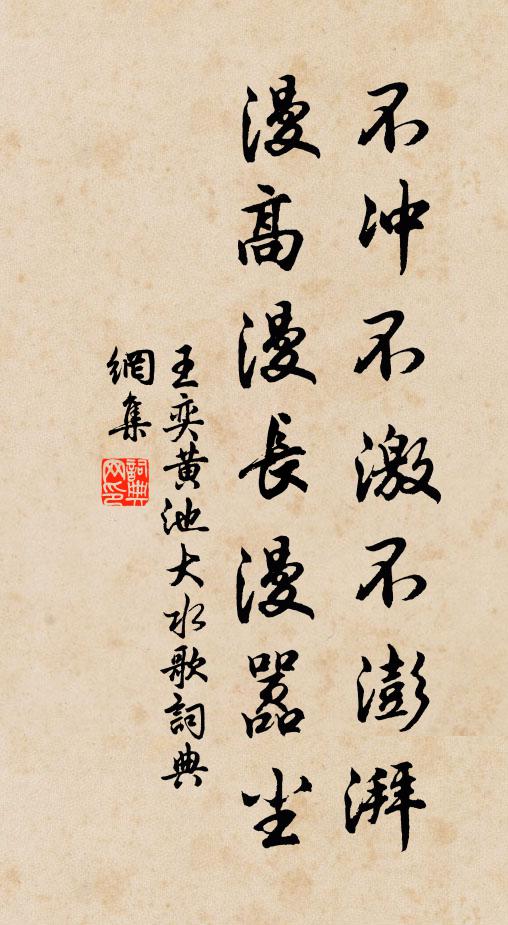 不冲不激不澎湃
漫高漫長漫囂尘
王奕黄池大水歌詞典
網集
詞典网印